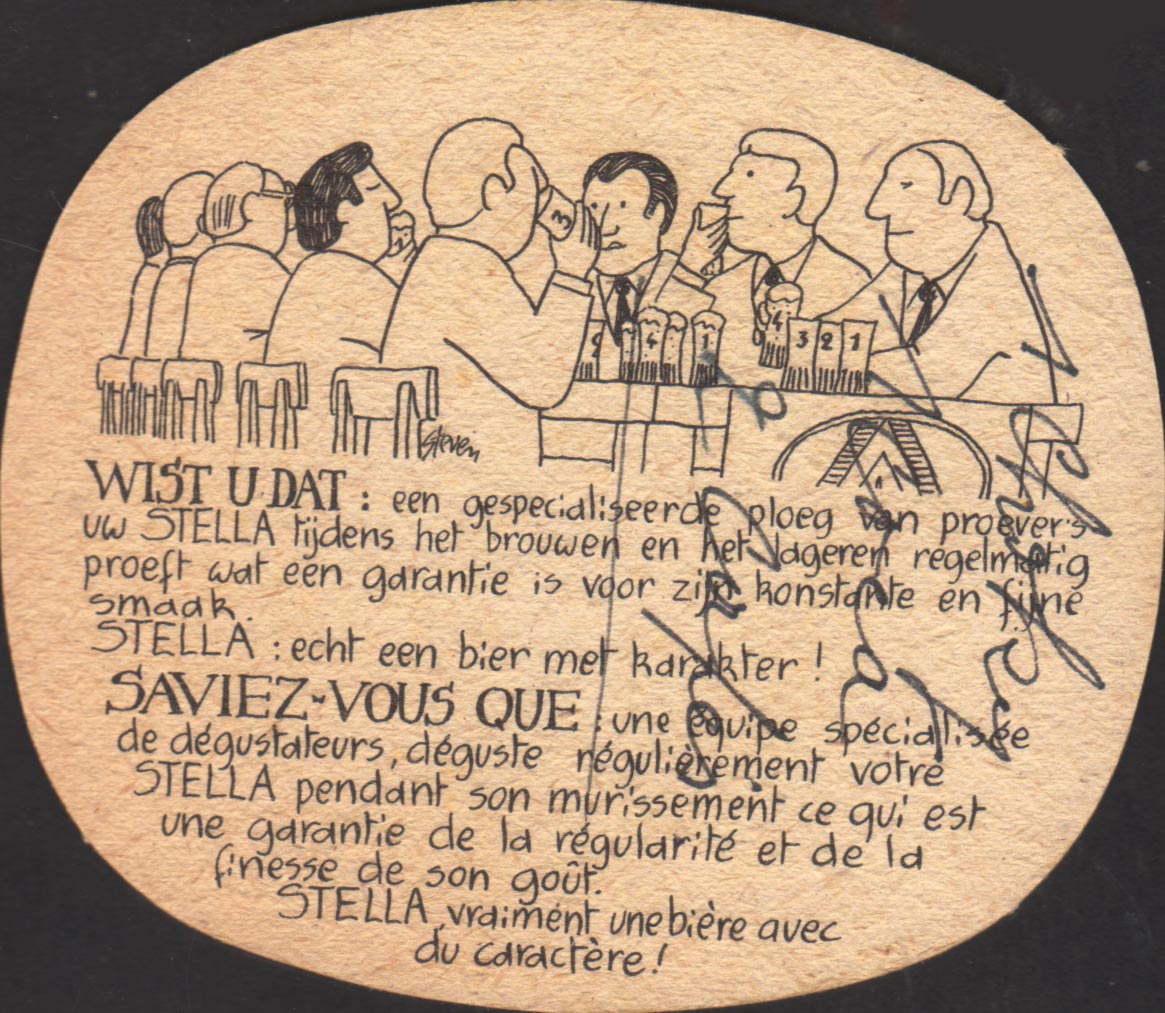 3
2 4 1
4 3 2 1
Stevin
WIST U DAT : een gespecialiseerde ploeg van proevers
uw STELLA tijdens het brouwen en het lageren regelmatig
proeft wat een garantie is voor zijn konstante en fijne
smaak.
STELLA : echt een bier met karakter !
SAVIEZ-VOUS QUE : une équipe spécialisée
de dégustateurs, déguste régulièrement votre
STELLA pendant son murissement ce qui est
une garantie de la régularité et de la
finesse de son goût.
STELLA, vraiment une bière avec
du caractère !